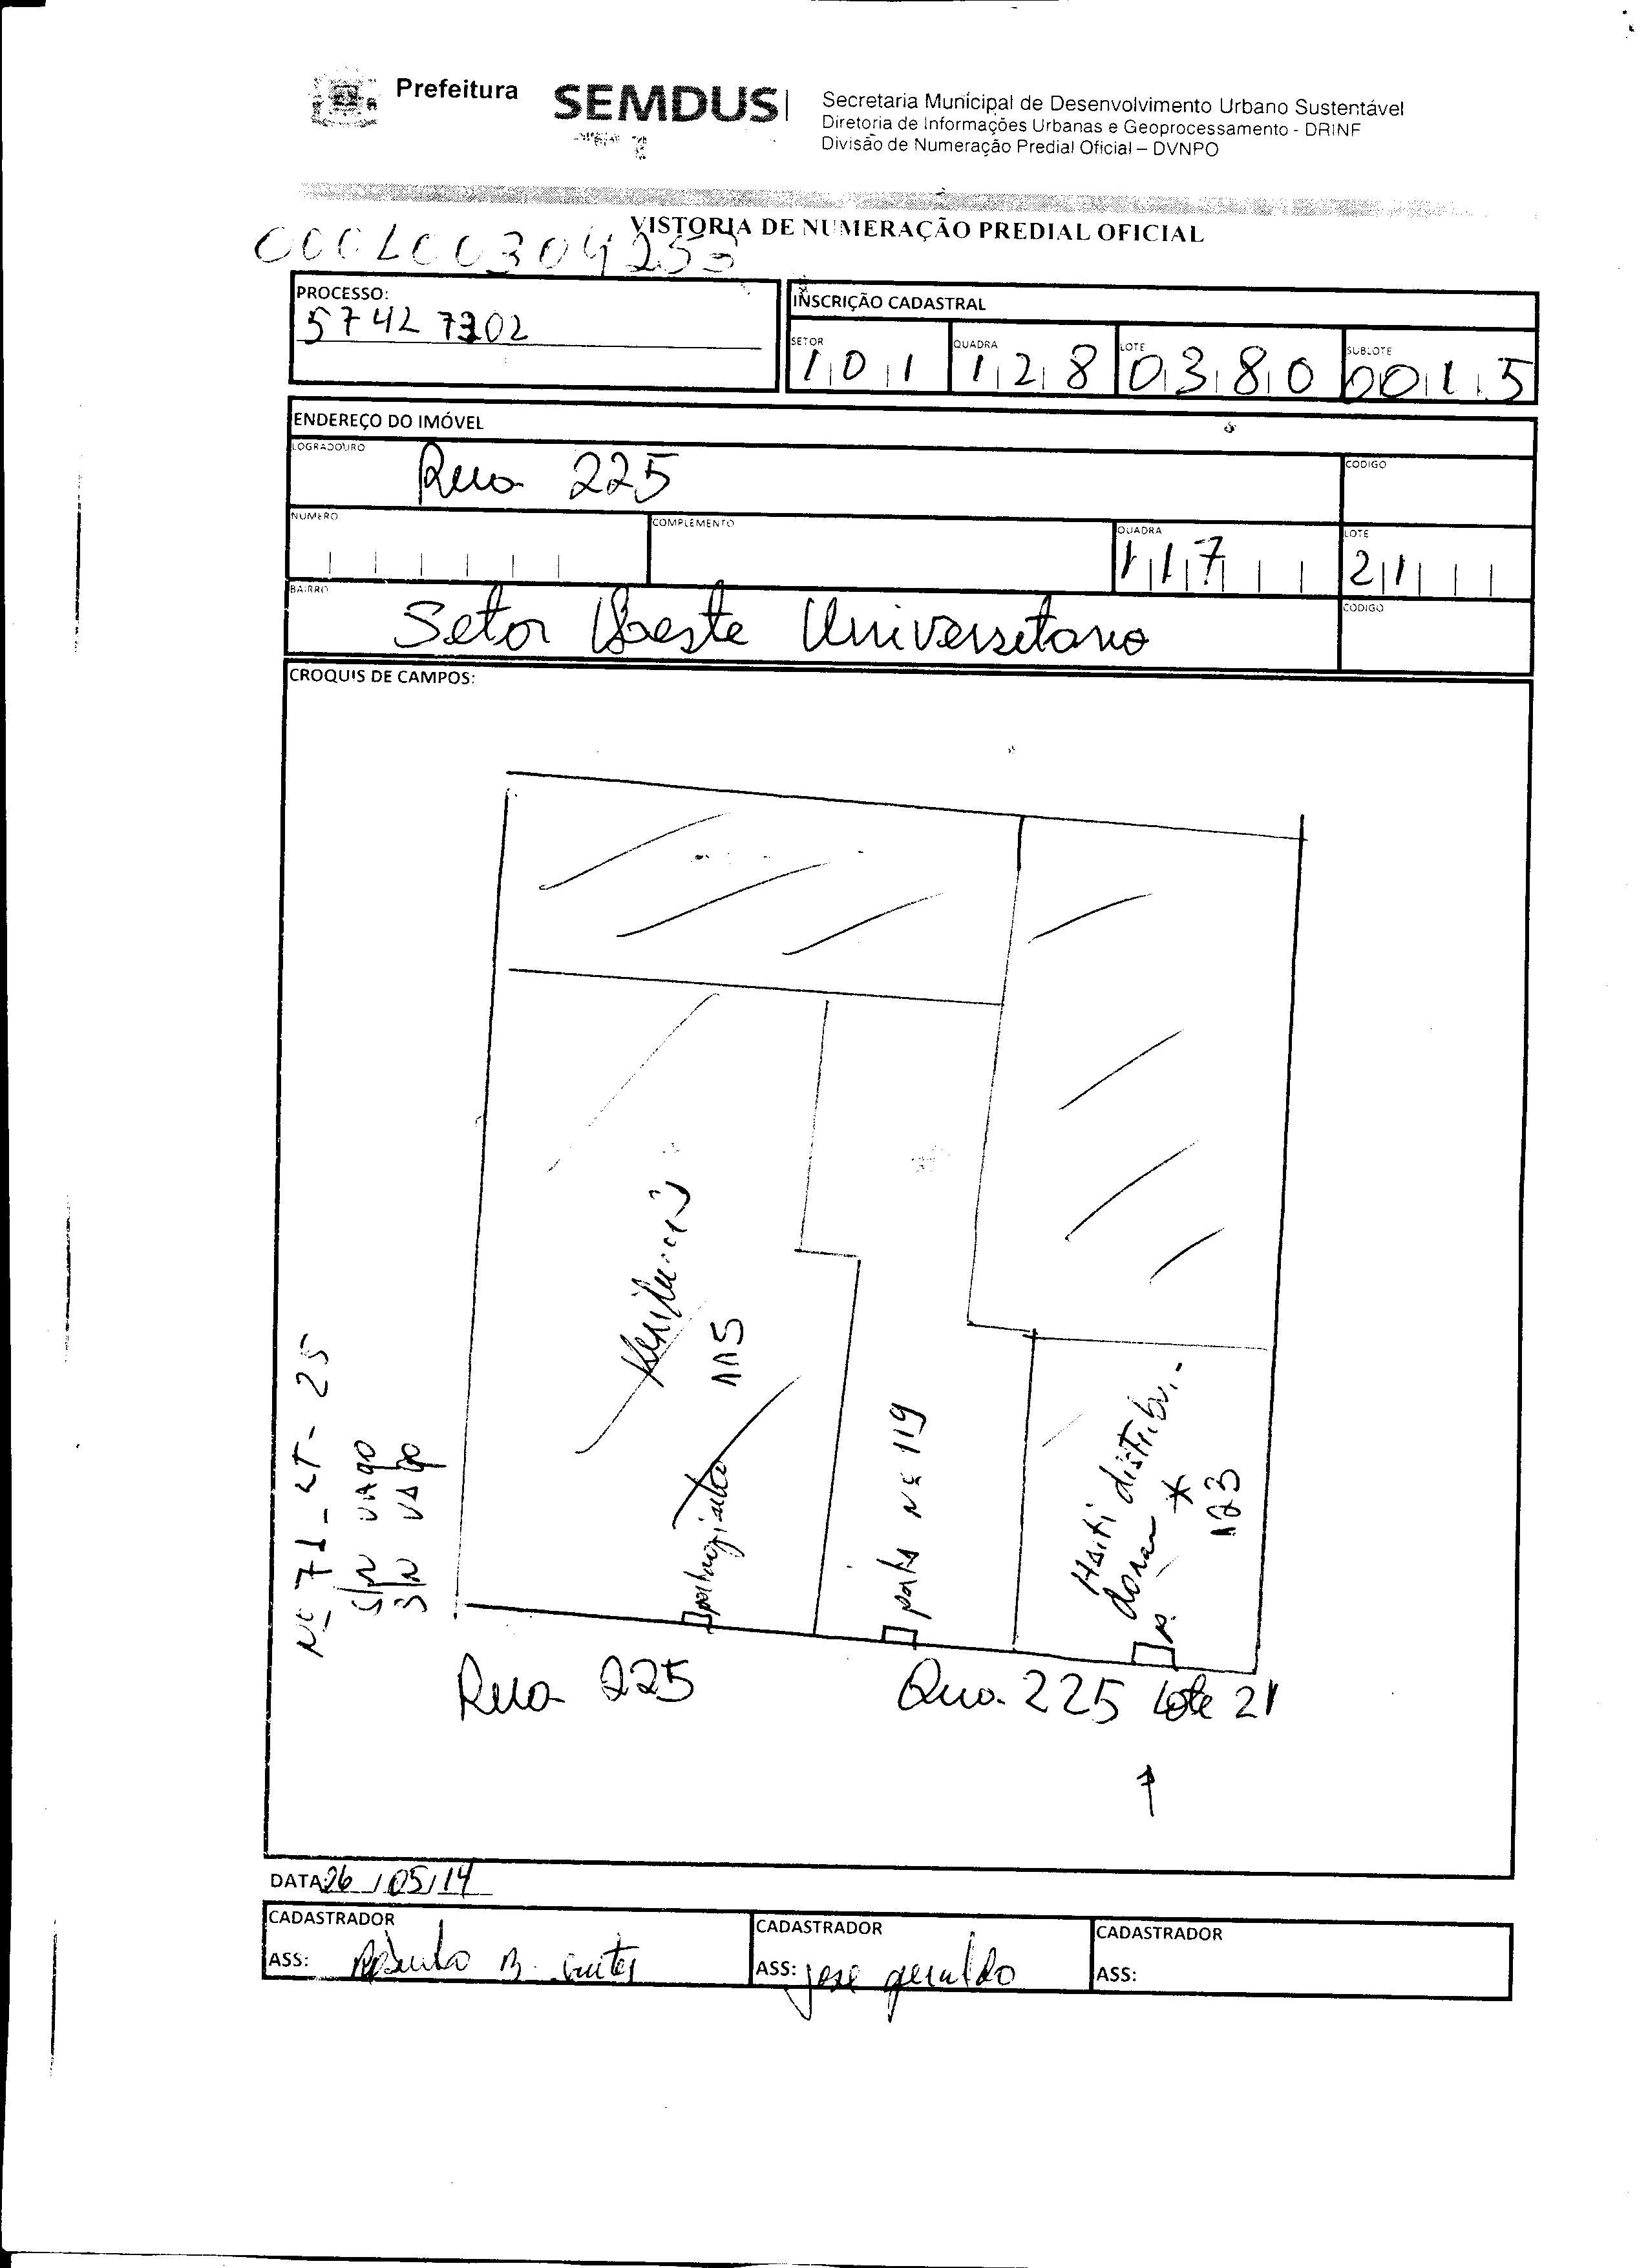 Prefeitura
SEMDUS
Secretaria Municipal de Desenvolvimento Urbano Sustentável
Diretoria de Informações Urbanas e Geoprocessamento - DRINF
Divisão de Numeração Predial Oficial – DVNPO
VISTORIA DE NUMERAÇÃO PREDIAL OFICIAL
PROCESSO:
57427302
INSCRIÇÃO CADASTRAL
SETOR QUADRA LOTE SUBLOTE
101 128 0380 0015
ENDEREÇO DO IMÓVEL
LOGRADOURO
Rua 225
CÓDIGO
NUMERO COMPLEMENTO QUADRA LOTE
117 21
BAIRRO
CÓDIGO
Setor Universitario
CROQUIS DE CAMPOS:
Residencia
115
porta Nº 119
Haiti distribui-
dora *
123
Nº 71 - LT - 25
S/N VAgo
S/N VAgo
Rua 225
Rua 225 Lote 21
DATA: 26/05/14
CADASTRADOR
ASS:
CADASTRADOR
ASS: jose geraldo
CADASTRADOR
ASS: